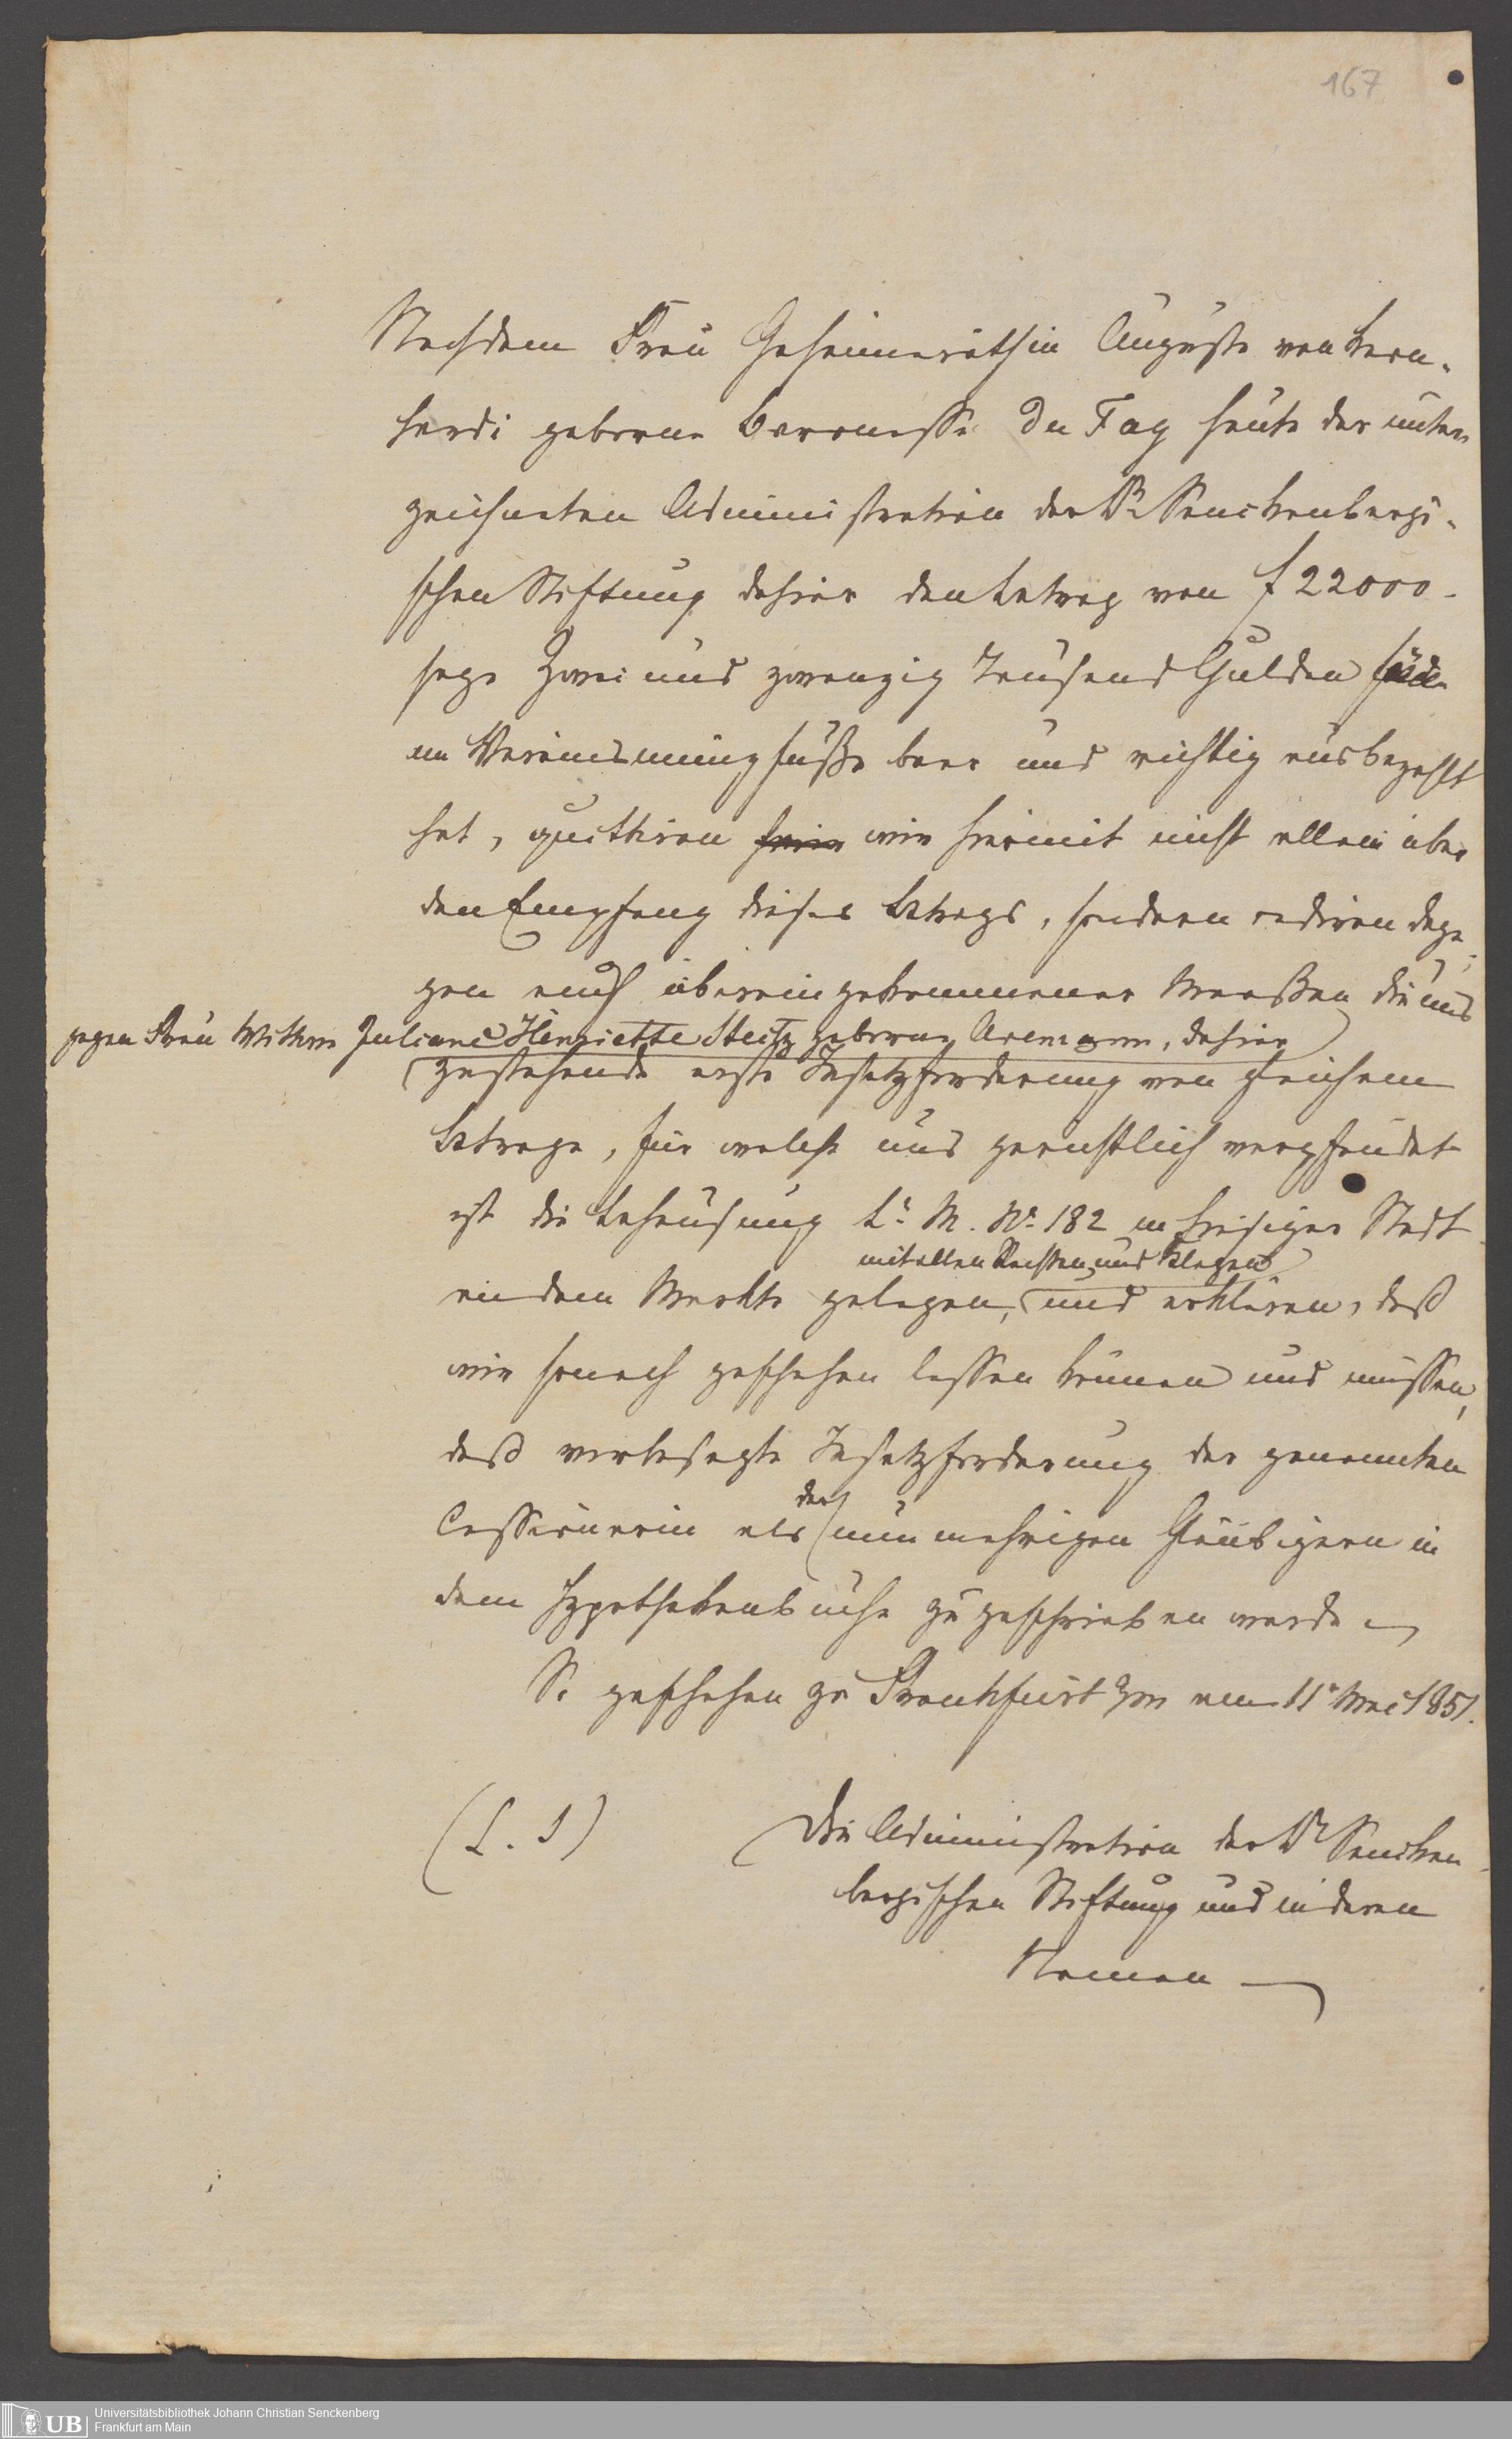 167
Nachdem Frau Geheimeräthin Auguste von Bern-
hardi geborne Baronesse Du Fay heute der unter
zeichneten Administration der Dr Senckenbergi-
schen Stiftung dahier den Betrag von f 22000-
sage Zwei und zwanzig Tausend Gulden
im Vereinsmünzfuße baar und richtig ausbezahlt
hat, quittiren wir hiermit nicht allein über
den Empfang dieses Betrags, sondern cediren dage-
gen auch übereingekommener Maaßen die uns
gegen Frau Wittwe Juliane Henriette Steitz geborne, dahier
zustehende erste Insatzforderung von gleichem
Betrage, für welche uns gerichtlich verpfändet
ist die Behausung Lr. M. No. 182 in hiesiger Stadt
mit allen Rechten und Klagen
an dem Markte gelegen, und erklären, daß
wir sonach geschehen lassen können und müssen,
daß vorbesagte Insatzforderung der genannten
der
Cessionarin als nunmehrigen Gläubigerin in
dem Hypothekenbuche zugeschrieben werde.
So geschehen zu Frankfurt a/m am 11n Mai 1851.
(L. S)
Die Administration der Dr Sencken
bergischen Stiftung und in deren
Namen
UB
Universitätsbibliothek Johann Christian Senckenberg
Frankfurt am Main